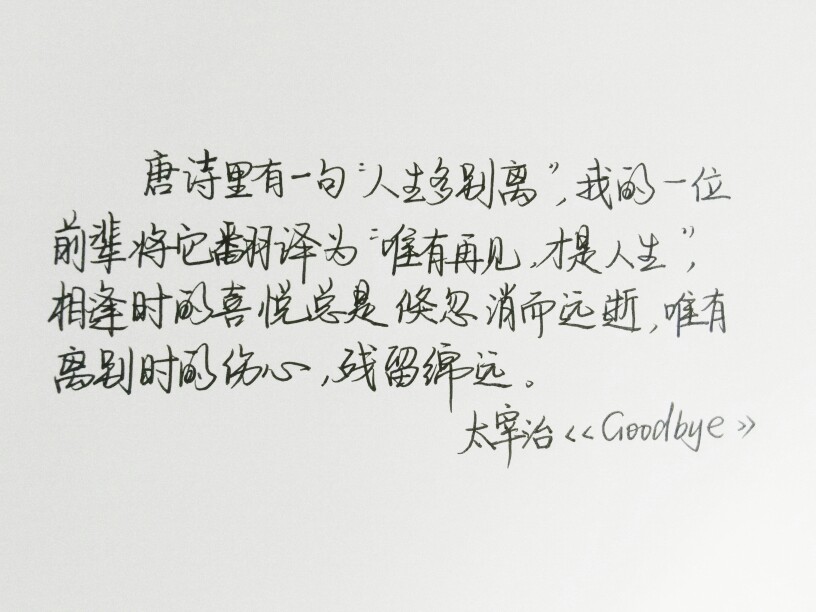 唐诗里有一句“人生多别离”,我的一位
前辈将它翻译为“唯有再见,才是人生”,
相逢时的喜悦总是倏忽消而远逝,唯有
离别时的伤心,残留绵远。
太宰治<<Goodbye>>